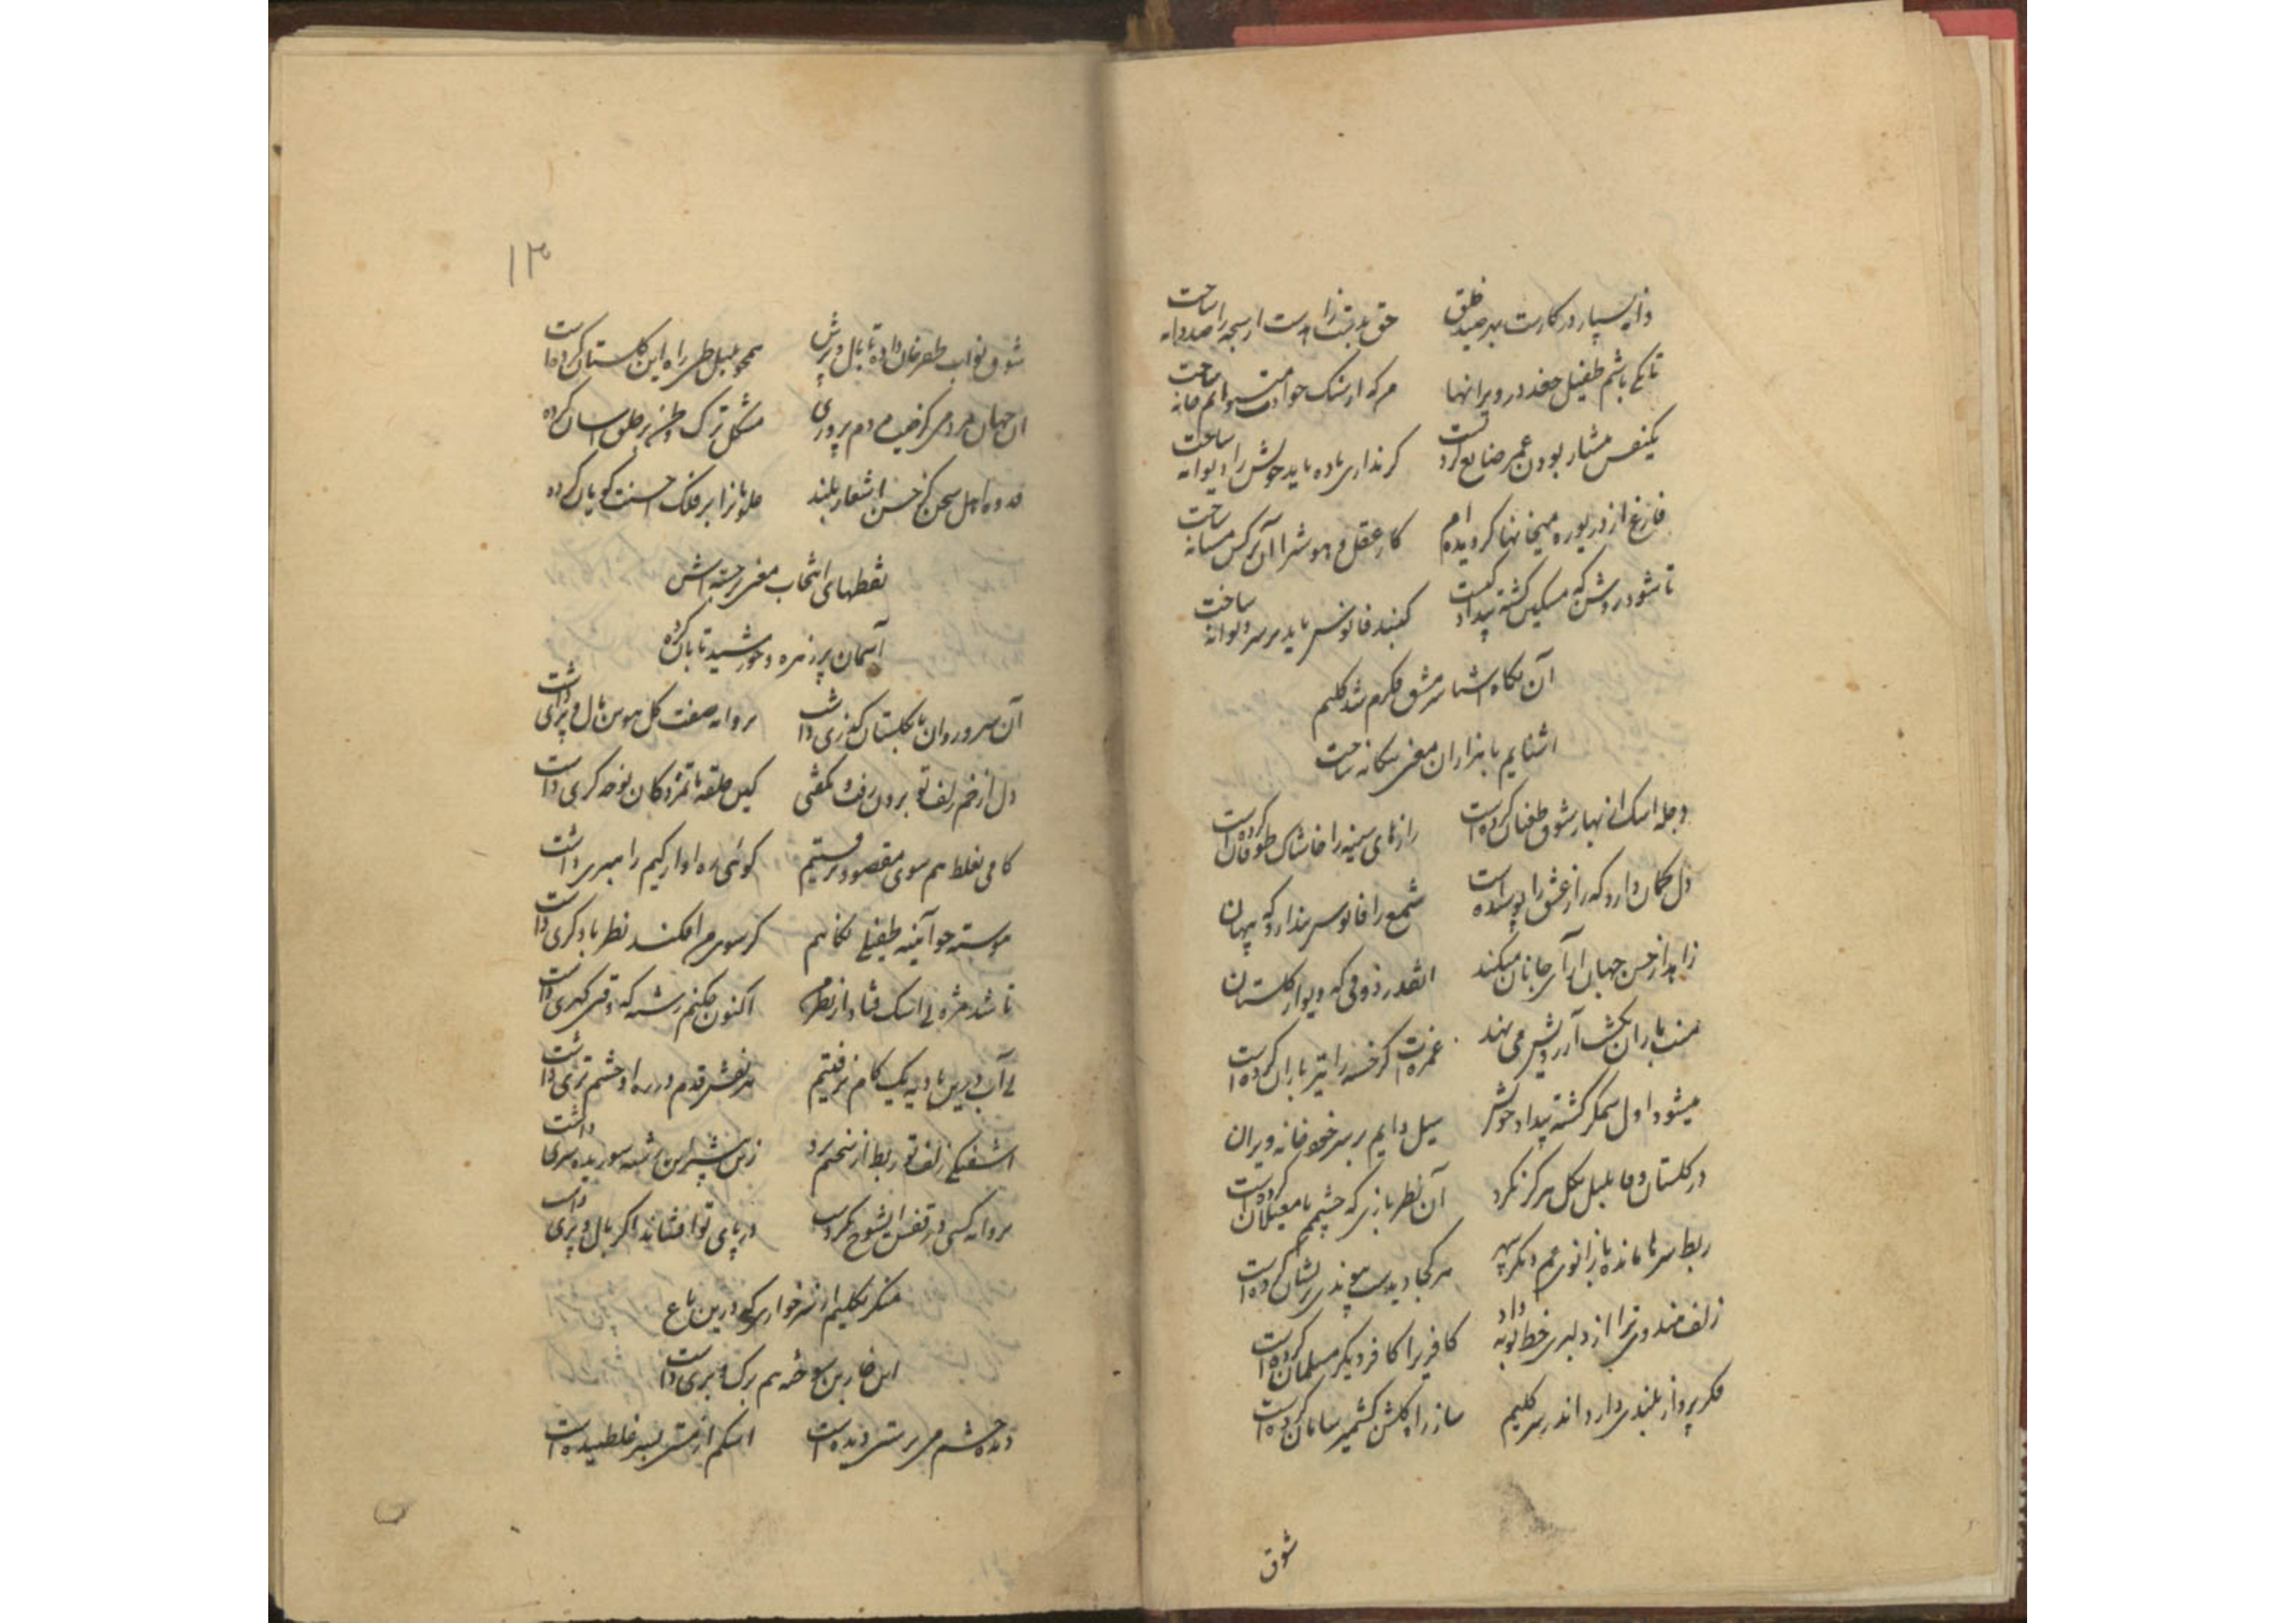 دانه بسیار در کارست بهر صید خلق حق بدستت زاهدست ار سبحه را صد دانه ساخت
تا کی باشم طفیل جغد در ویرانها هر که از سنگ حوادث میتوانم خانه ساخت
یکنفس هشیار بودن عمر ضایع کردنست گر نداری باده باید خویش را دیوانه ساخت
فارغ از دریوزه میخانها گردیده ام کار عقل و هوش را آن نرگس مستانه ساخت
تا شود روشن که مسکین کشته بیداد کیست گنبد فانوس باید بر سر پروانه ساخت
آن نگاه آشنا سر مشق فکرم شد کلیم
آشنایم با هزاران معنی بیگانه ساخت
دجله اشک از بهار شوق طغیان کرده است رازهای سینه را خاشاک طوفان کرده است
دل گمان دارد که راز عشق را پوشیده است شمع را فانوس پندارد که پنهان
زاهد از حسن جهان آرای جانان میکند آنقدر ذوقی که دیوار گلستان
منت باران بکشت آرزویش می نهد غمزه ات گر خسته را تیر باران کرده است
میشود اول ستمگر کشته بیداد خویش سیل دایم بر سر خود خانه ویران
در گلستان وفا بلبل بگل هرگز نکرد آن نظر بازی که چشمم با مغیلان کرده است
ربط سر تا مانده با زانوی غم دیگر سپهر هر کجا دیدست پیوندی پریشان کرده است
زلف هندوی ترا از دلبری خط توبه داد کافریرا کافر دیگر مسلمان کرده است
فکر پرواز بلندی دارد اندر سر کلیم ساز راه گلشن کشمیر سامان کرده است
شوق
۱۳
شوق نواب ظفر خان داده تا بال و پرش همچو بلبل طی راه این گلستان کرده است
آن جهان مردمی کز فیض مردم پروری مشکل ترک وطن بر خلق آسان کرده
قدوه اهل سخن کز حسن اشعار بلند علویانرا بر فلک احسنت گویان کرده
نقطهای انتخاب معنی برجسته اش
آسمان پر زهره و خورشید تابان کرده
آن سرو روان تا بگلستان گذری داشت پروانه صفت گل هوس بال و پری داشت
دل از خم زلف تو برون رفت و نگفتی کین حلقه ماتمزدگان نوحه گری داشت
گامی بغلط هم سوی مقصود نرفتیم گوئی ره آوارگیم راهبری داشت
پیوسته چو آئینه طفیلی نگاهم گر سوی من افکند نظر با دگری داشت
تا شد مژه بی اشک فتاد از نظر من اکنون چکنم رشته که وقتی گهری داشت
بی آب درین بادیه یک گام نرفتیم هر نقش قدم در ره او چشم تری داشت
آشفتگی زلف تو ربط از سخنم برد زین پیشتر این رشته شوریده سری داشت
پروانه کسی در قفس ای شوخ نکردست در پای تو افشاند اگر بال و پری داشت
منگر بکلیم از سر خواری که درین باغ
این خار بن سوخته هم برگ و بری داشت
دیده چشم می پرستی دیده است اشکم از مستی بسر غلطیده است